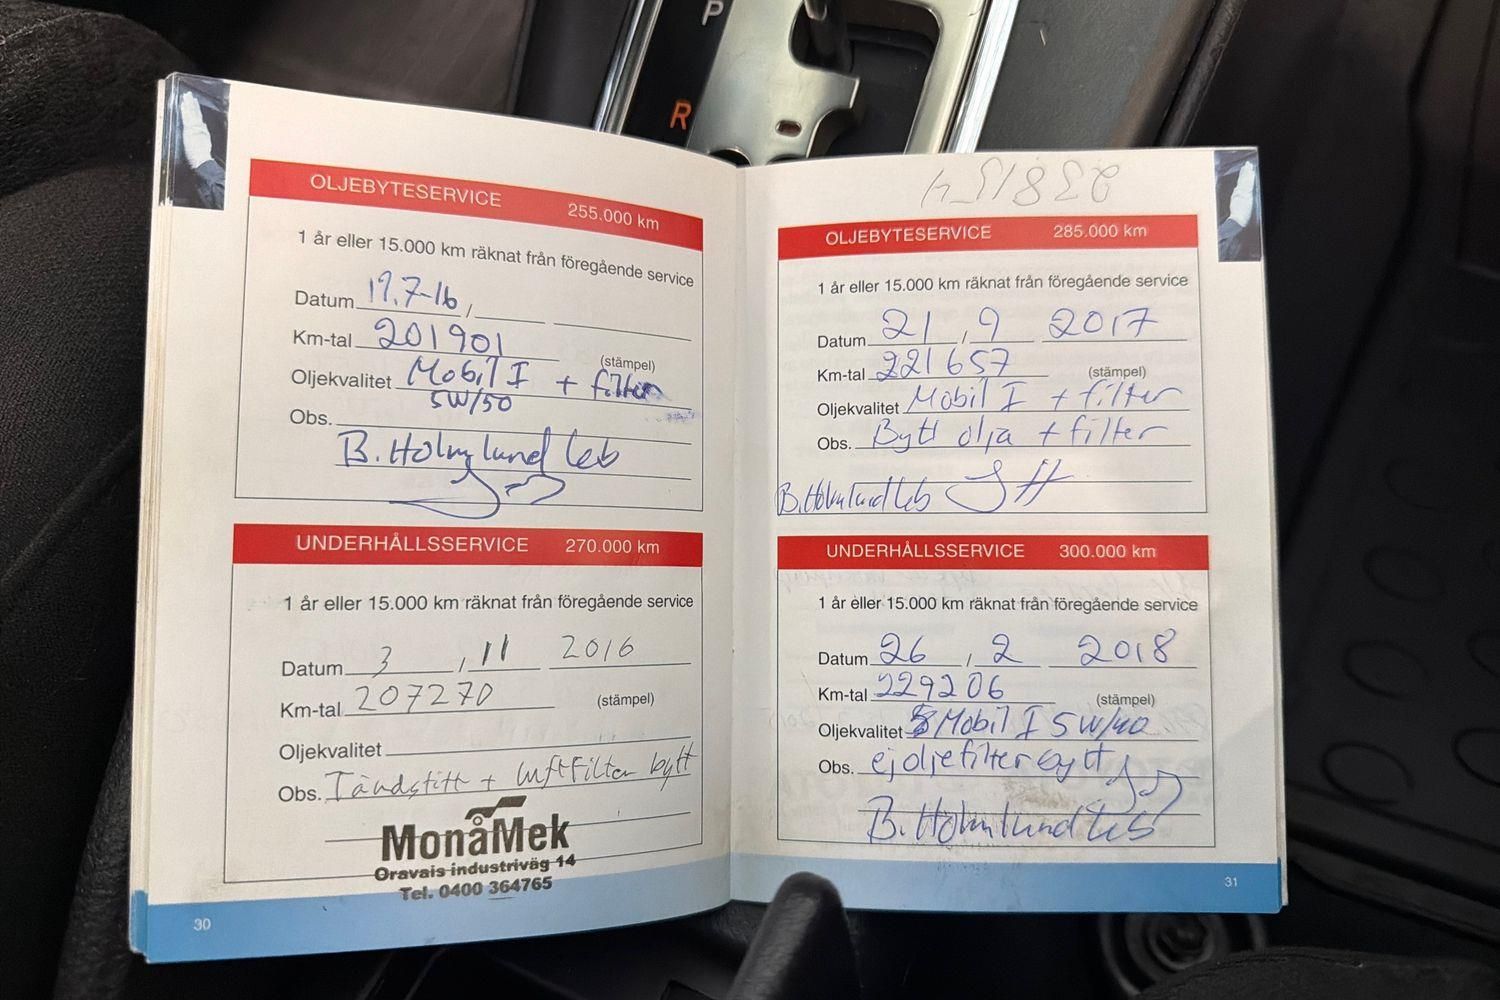 P
R
OLJEBYTESERVICE 255.000 km
1 år eller 15.000 km räknat från föregående service
Datum 19.7-16 /
Km-tal 201901
(stämpel)
Oljekvalitet Mobil I + filter
5W/50
Obs.
B. Holmlund Ceb
UNDERHÅLLSSERVICE 270.000 km
1 år eller 15.000 km räknat från föregående service
Datum 3 / 11 2016
Km-tal 207270 (stämpel)
Oljekvalitet
Obs. Tändstift + luftfilter bytt
MonåMek
Oravais industriväg 14
Tel. 0400 364765
30
OLJEBYTESERVICE 285.000 km
1 år eller 15.000 km räknat från föregående service
Datum 21 / 9 2017
Km-tal 221657 (stämpel)
Oljekvalitet Mobil I + filter
Obs. Bytt olja + filter
B. Holmlund Ceb
UNDERHÅLLSSERVICE 300.000 km
1 år eller 15.000 km räknat från föregående service
Datum 26 / 2 2018
Km-tal 229206 (stämpel)
Oljekvalitet Mobil I 5W/40
Obs. ej oljefilter bytt
B. Holmlund Ceb
31